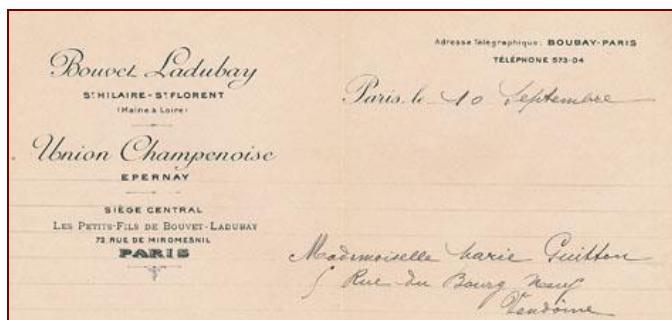 Bouvet Ladubay
St HILAIRE - St FLORENT
(Maine à Loire)
Union Champenoise
EPERNAY
SIÈGE CENTRAL
LES PETITS-FILS DE BOUVET-LADUBAY
72, RUE DE MIROMESNIL
PARIS
Adresse Télégraphique: BOUBAY-PARIS
TÉLÉPHONE 573-04
Paris, le 10 Septembre
Mademoiselle Marie Guitton
5 Rue du Bourg Neuf
Vendôme